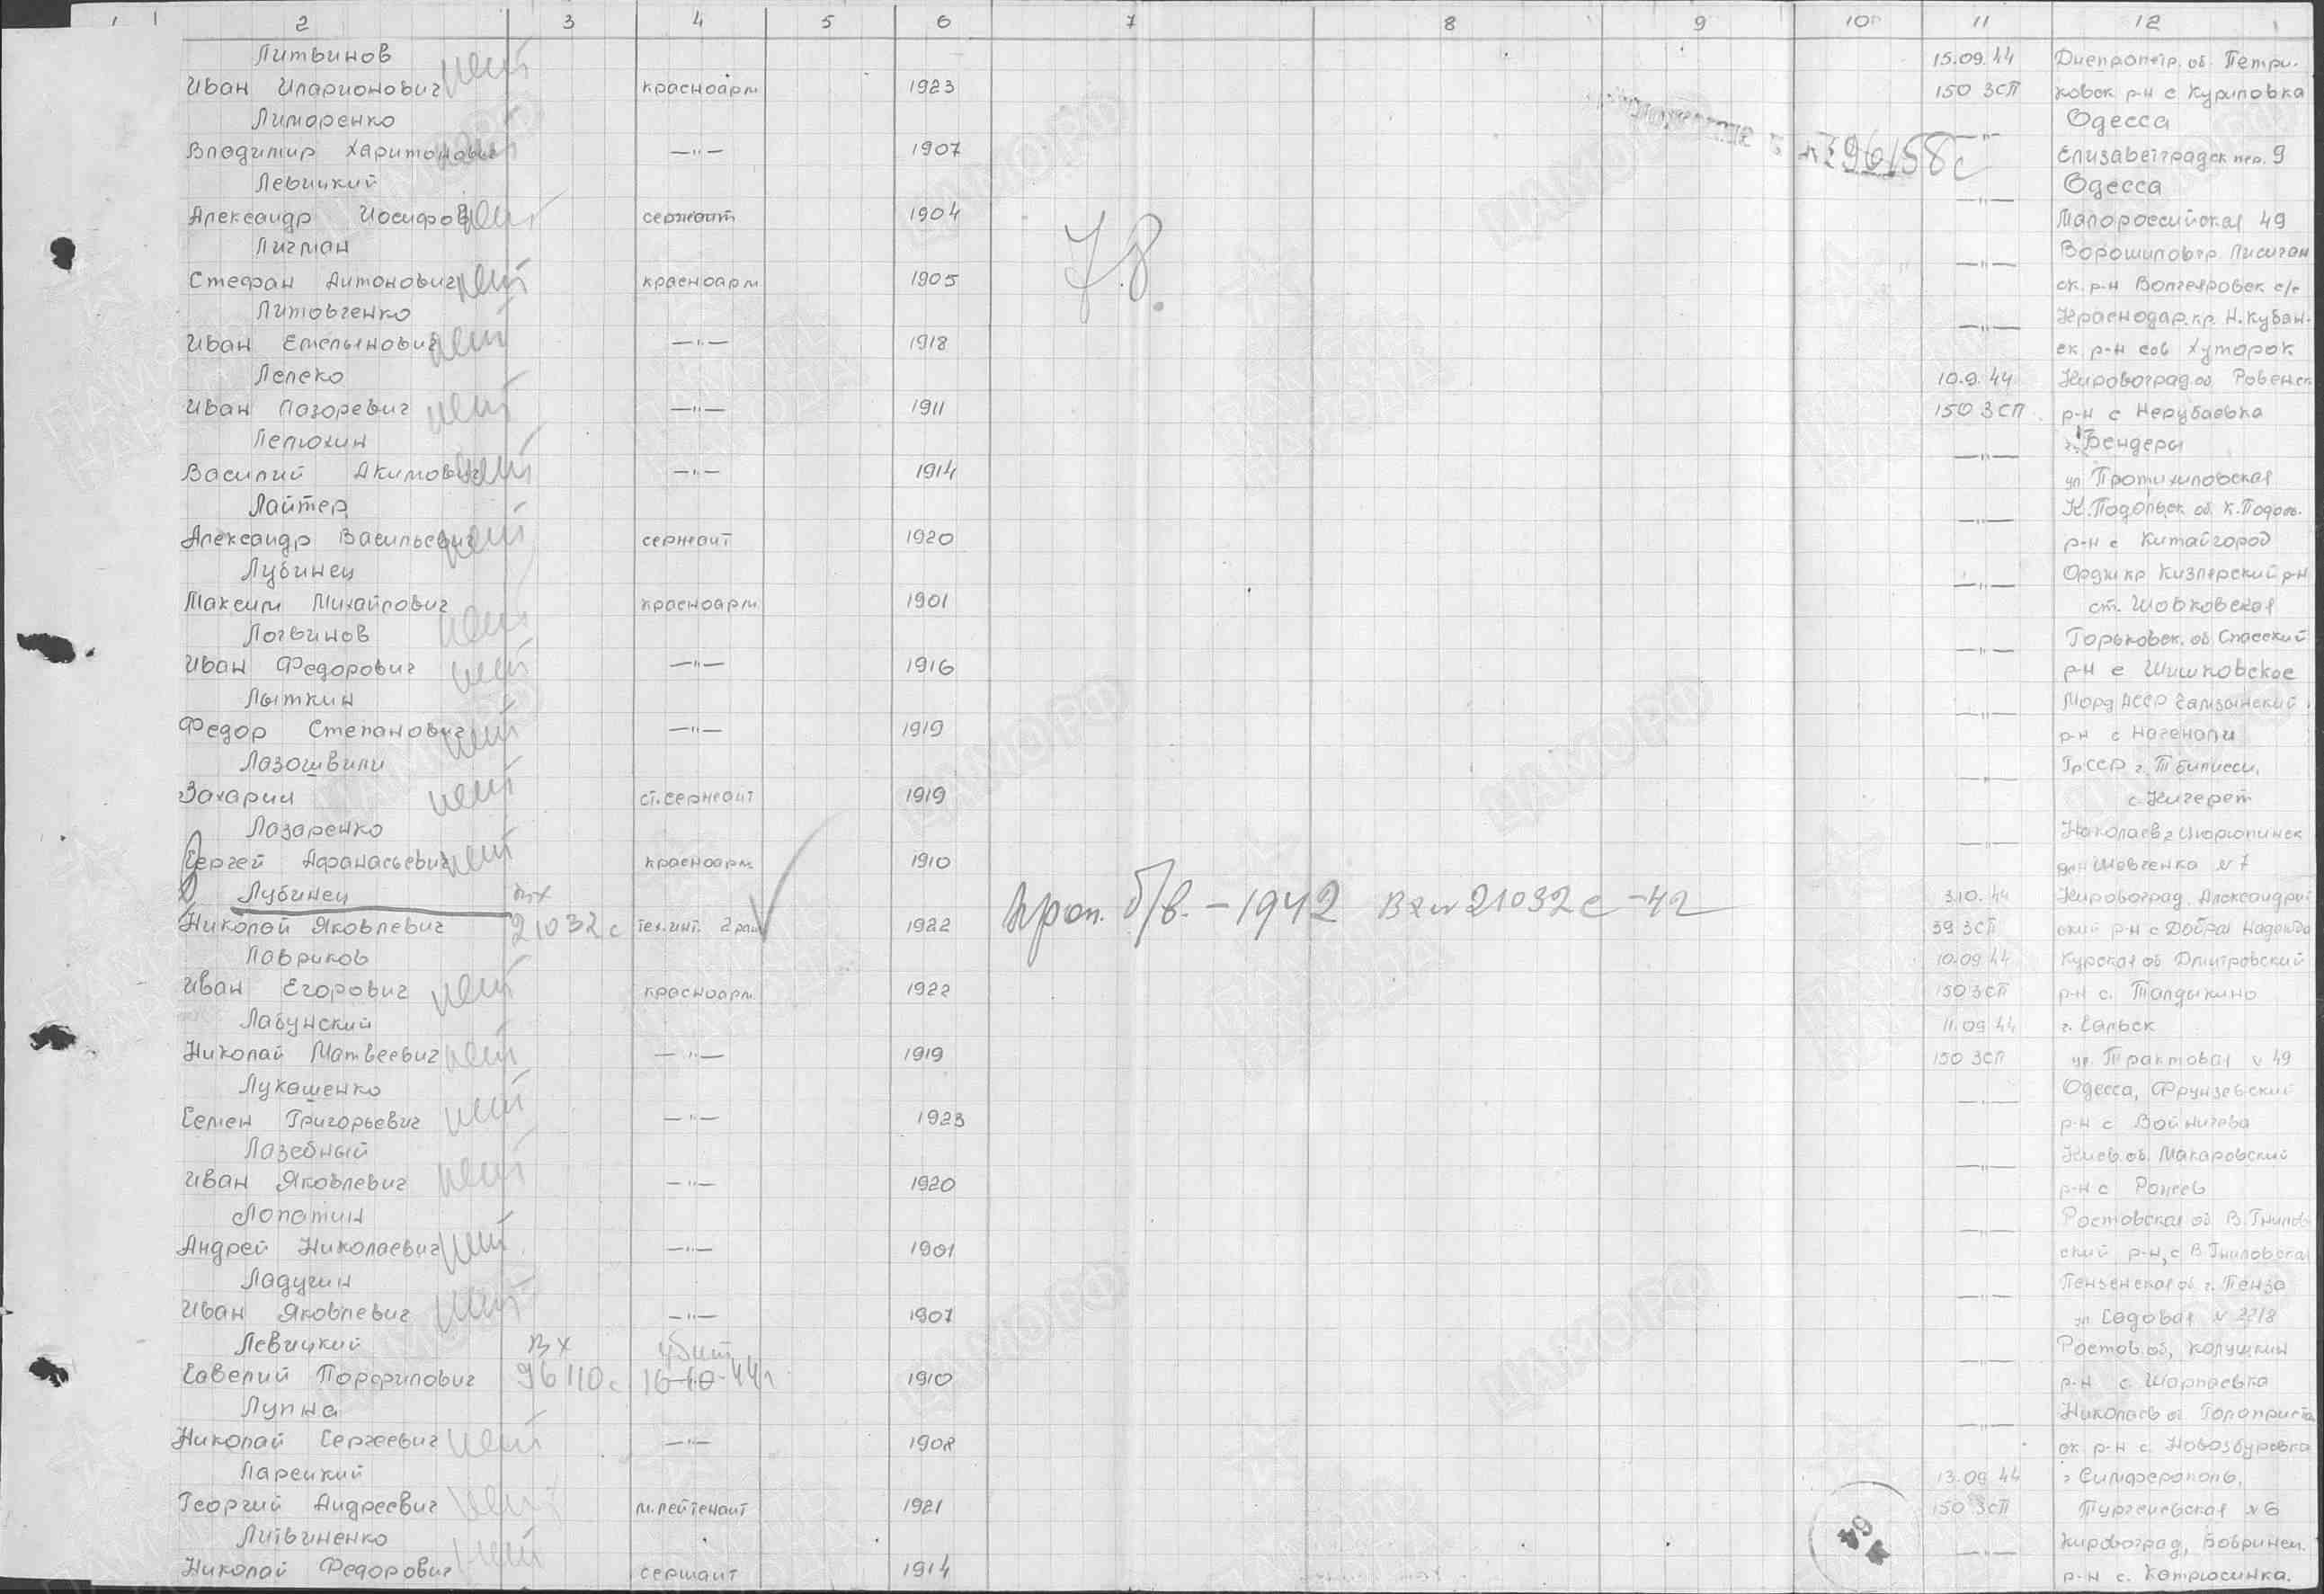 1 2 3 4 5 6 7 8 9 10 11 12
Литвинов 15.09.44 Днепропетр. об. Петри-
Иван Иларионович нет красноарм 1923 150 ЗСП ковск р-н с Куриловка
Лимаренко —"— Одесса
Владимир Харитонович нет —"— 1907 296158с Елизаветградск пер. 9
Левицкий —"— Одесса
Александр Иосифов нет сержант 1904 Малороссийская 49
Лигман —"— Ворошиловгр. Лисичан
Стефан Антонович нет красноарм 1905 ск. р-н с/с
Литовченко —"— Краснодар. кр. Н. Кубан-
Иван Емельянович нет —"— 1918 ск. р-н сов Хуторок
Лелеко 10.9.44 Кировоград об. Ровенск
Иван Лазоревич нет —"— 1911 150 ЗСП р-н с Нерубаевка
Лелюхин —"— г. Бендеры
Василий Акимович нет —"— 1914 ул
Лайтер —"— К. Подольск об. К. Подоль.
Александр Васильевич нет сержант 1920 р-н с Китайгород
Лубинец —"— Ордж кр Кизлярский р-н
Максим Михайлович нет красноарм 1901 ст. Шовковская
Логвинов —"— Горьковск. об. Спасский
Иван Федорович нет —"— 1916 р-н с Шишковское
Лыткин —"— Морд АССР Чамзинский
Федор Степанович нет —"— 1919 р-н с
Лазошвили —"— Гр ССР г. Тбилисси,
Захарии нет ст. сержант 1919 с. Кигерет
Лазаренко —"— Николаев г
Сергей Афанасьевич нет красноарм 1910 Шевченко № 7
Лубинец вх 3.10.44 Кировоград. Александрий
Николай Яковлевич 21032с тех. инт. 2 ран 1922 проп. б/в. – 1942 Вх № 21032с – 42 39 ЗСП ский р-н с Добрая Надежда
Лавриков 10.09.44 Курская об Дмитровский
Иван Егорович нет красноарм. 1922 150 ЗСП р-н с. Талдыкино
Лабунский 11.09.44 г. Сальск
Николай Матвеевич нет —"— 1919 150 ЗСП ул. Трактовая № 49
Лукашенко —"— Одесса, Фрунзевский
Семен Григорьевич нет —"— 1923 р-н с Войничева
Лазебный —"— Киев. об. Макаровский
Иван Яковлевич нет —"— 1920 р-н с Рожев
Лопатин —"— Ростовская об В. Гнилов
Андрей Николаевич нет —"— 1901 ский р-н, с В. Гниловская
Ладугин —"— Пензенская об г. Пенза
Иван Яковлевич нет —"— 1907 ул Садовая №
Левицкий Вх убит —"— Ростов. об, Колушкин
Савелий Порфилович 96110с 16-10-44г 1910 р-н с. Шарпаевка
Лупна —"— Николаев об Голаприста
Николай Сергеевич нет —"— 1908 ск. р-н с. Новозбурьевка
Ларецкий 13.09.44 г Симферополь,
Георгий Андреевич нет м. лейтенант 1921 150 ЗСП Тургеневская № 6
Литвиненко 64 —"— Кировоград, Бобринец.
Николай Федорович нет сержант 1914 р-н с. Катрюсинка.